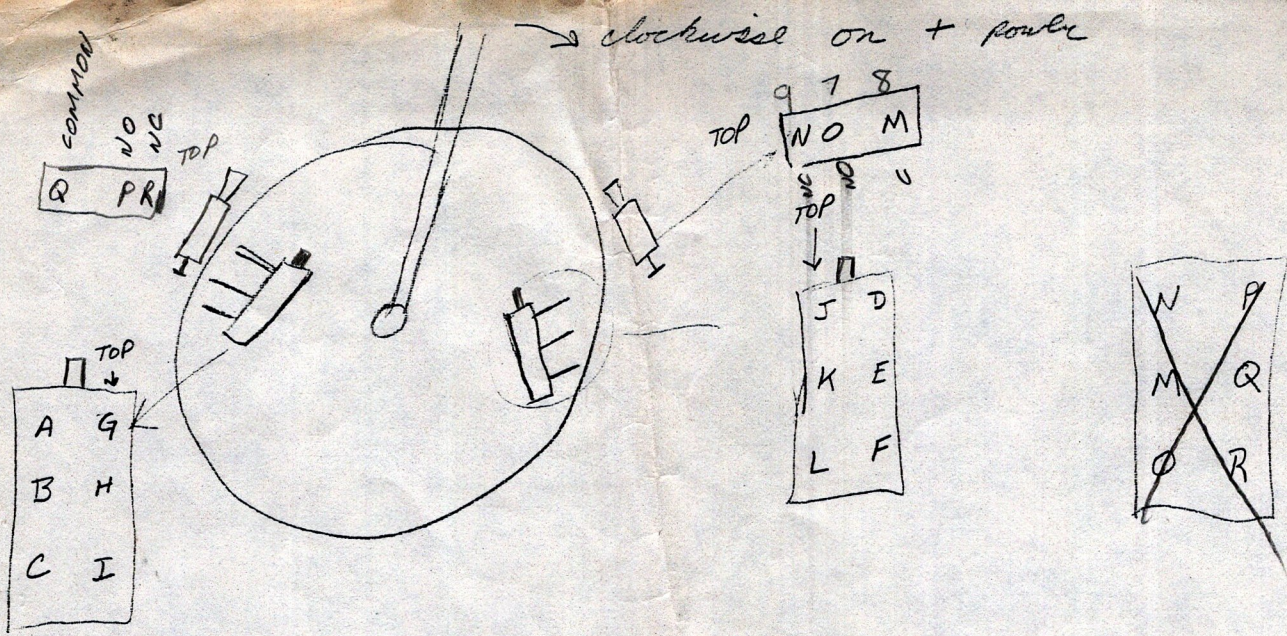 clockwise on + power
COMMON
NO
NC
TOP
Q PR
9 7 8
TOP
N O M
NC
NO
C
TOP
J D
K E
L F
N P
M Q
O R
TOP
A G
B H
C I